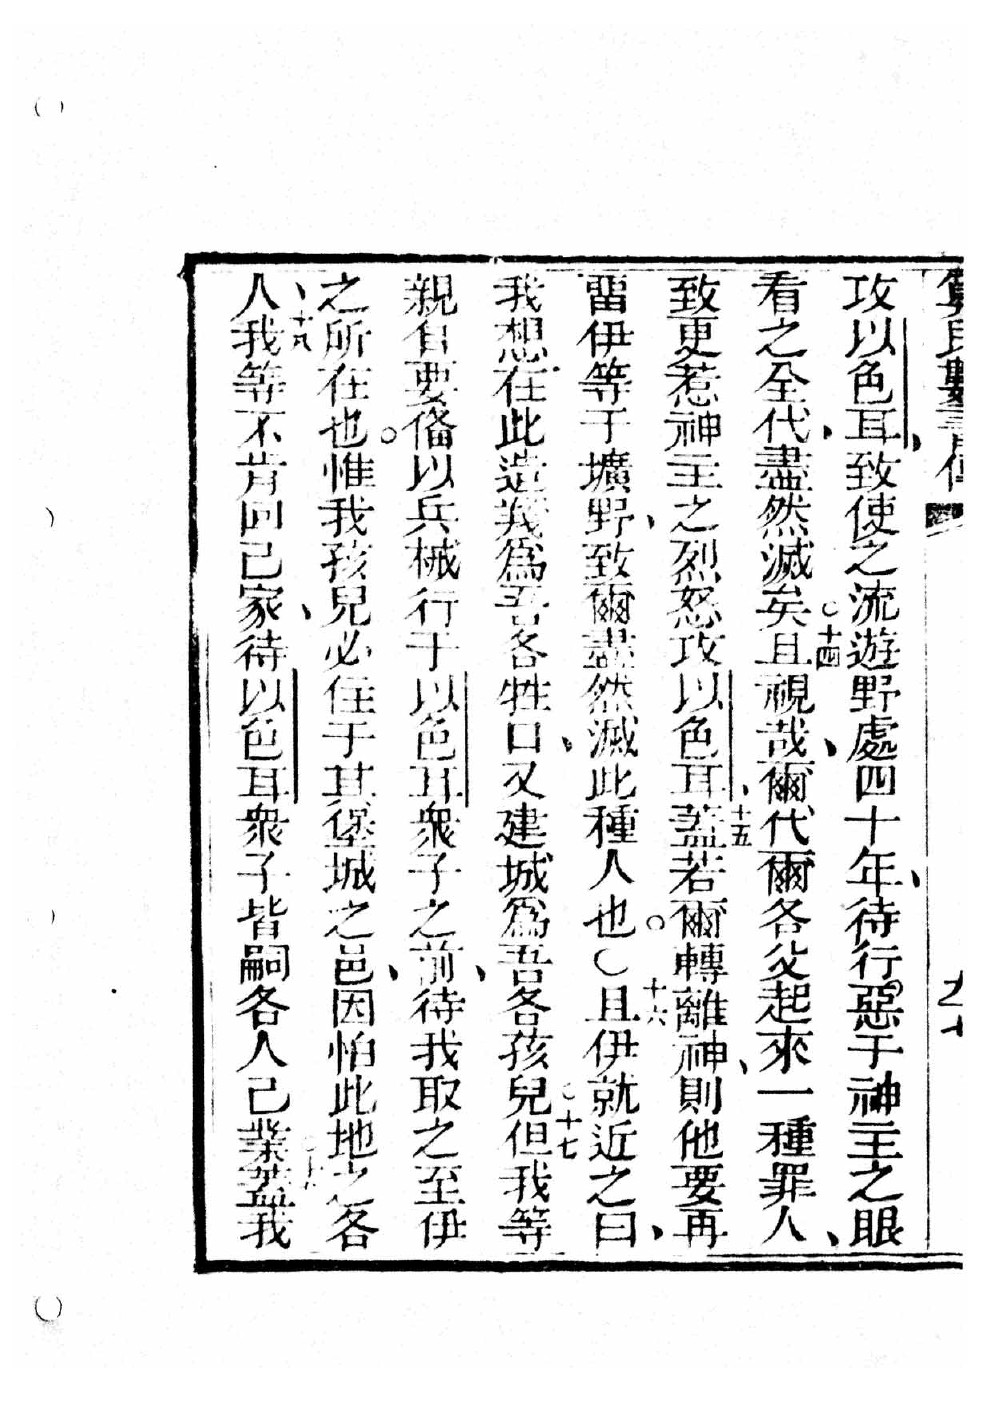 攻以色耳、致使之流遊野處四十年、待行惡于神主之眼
看之全代、盡然滅矣○十四且視哉、爾代爾各父起來一種罪人、
致更惹神主之烈怒攻以色耳、十五蓋若爾轉離神、則他要再
畱伊等于壙野、致爾盡然滅此種人也○○十六且伊就近之曰、
我想在此造羲爲吾各牲口、又建城爲吾各孩兒○十七但我等
親自要偹以兵械行于以色耳衆子之前、待我取之至伊
之所在也○惟我孩兒必住于其堡城之邑、因怕此地之各
人、十八我等不肯回己家、待以色耳衆子皆嗣各人己業○十九葢我